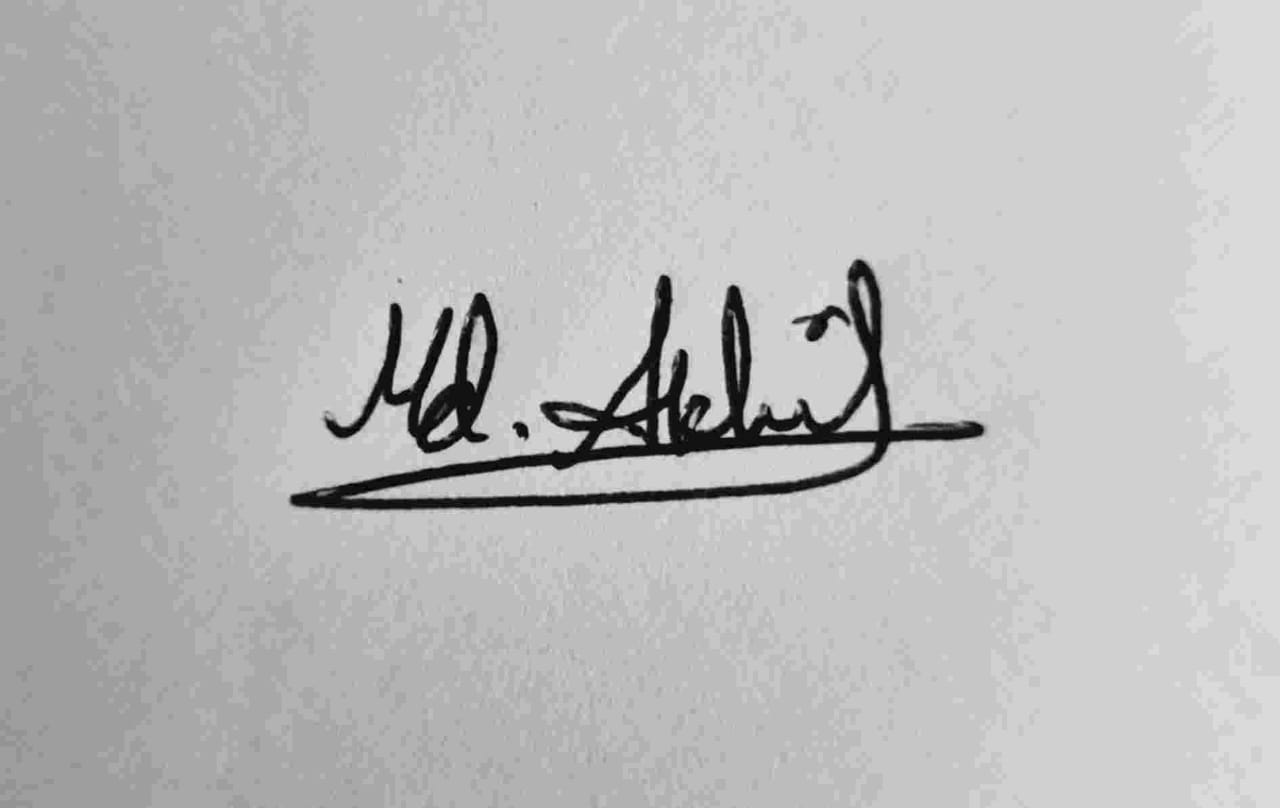 Md. Akhil